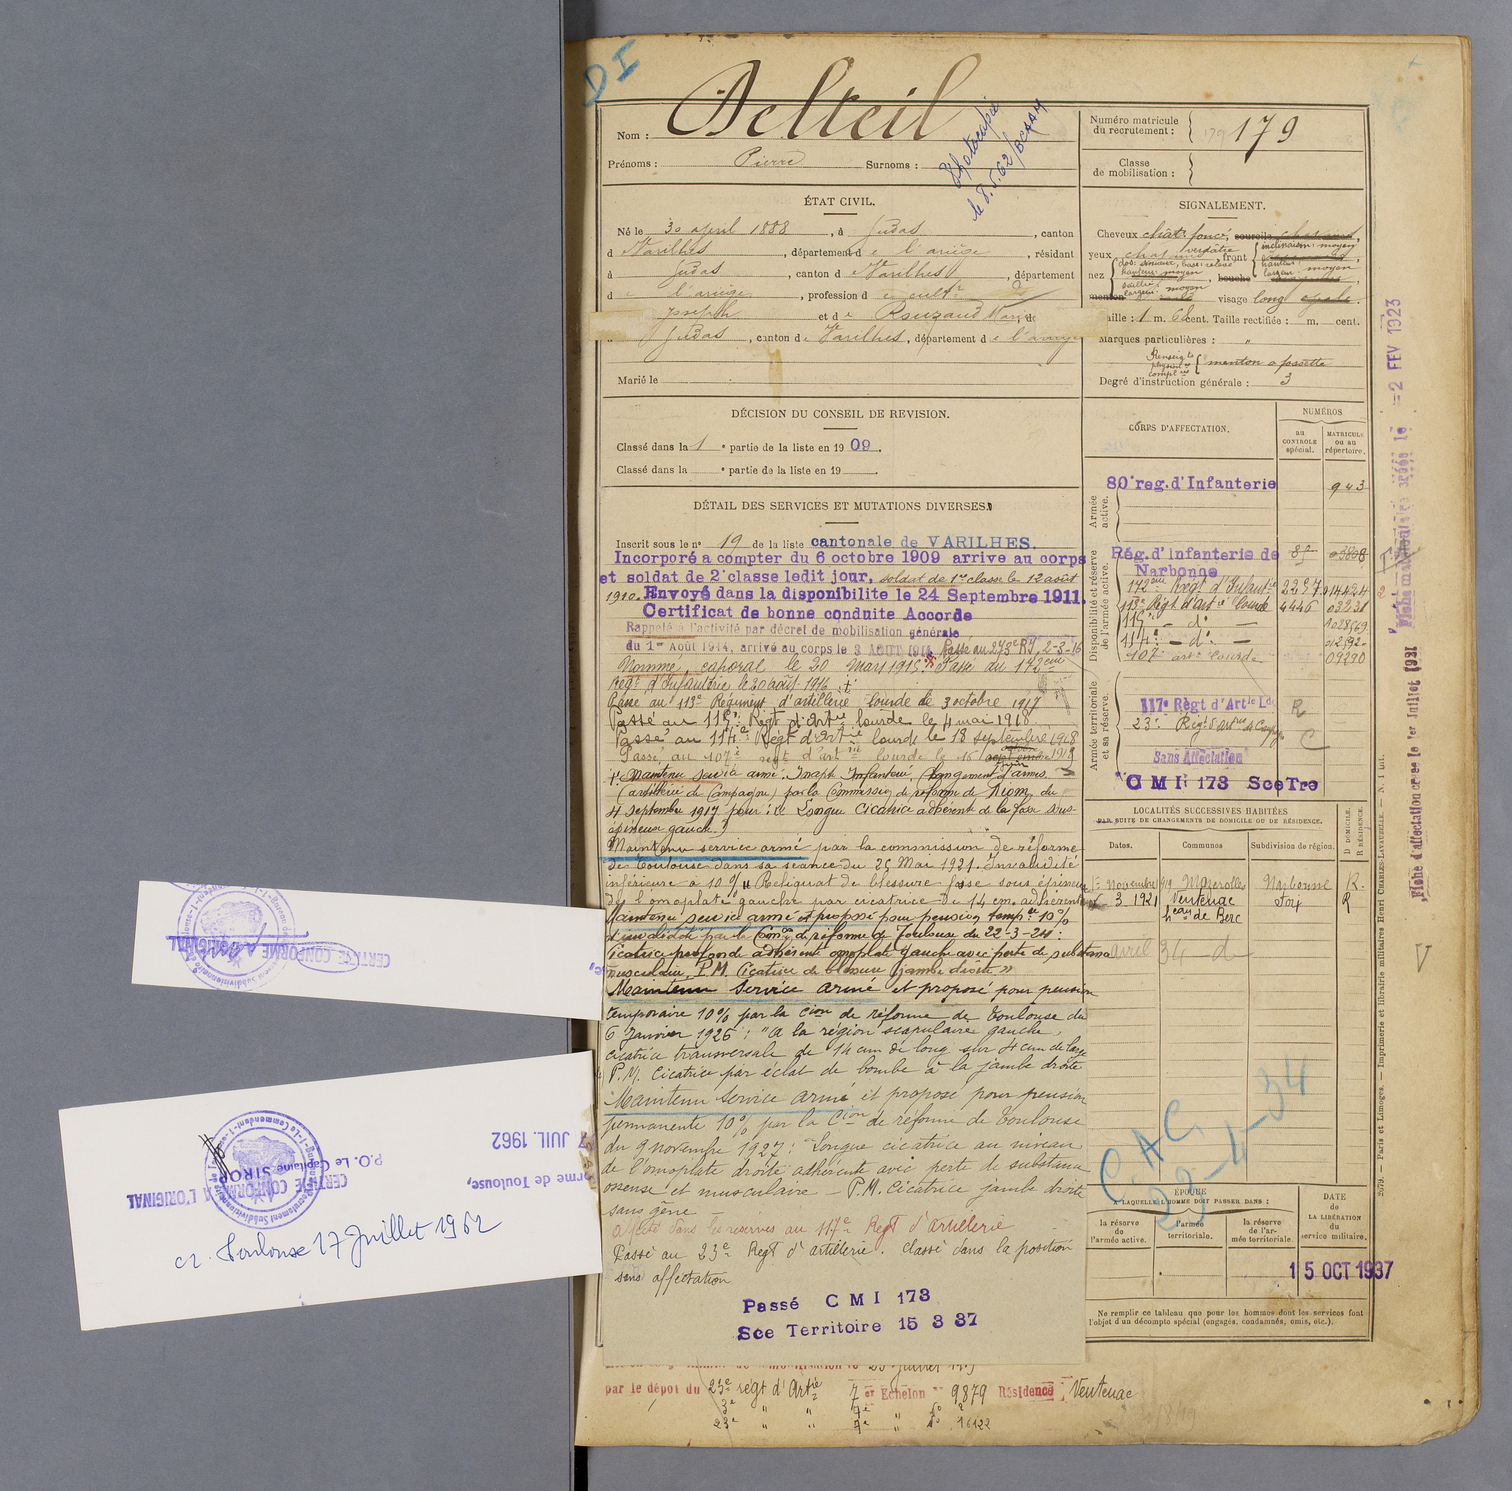 DI
Nom : Delteil
Prénoms : Pierre Surnoms :
Photocopie
le 8.5.62/BCAAM
Numéro matricule
du recrutement : 179
Classe
de mobilisation :
ÉTAT CIVIL.
Né le 30 april 1888, à Gudas, canton
d Varilhes, département de l'ariège, résidant
à Gudas, canton de Varilhes, département
de l'ariège, profession de cultr
Joseph et de Rouzaud
Gudas, canton de Varilhes, département de l'ariège
Marié le
SIGNALEMENT.
Cheveux chât. foncé, sourcils
yeux verdâtre, front inclinaison: moyen
hauteur:
largeur: moyen
nez dos: sinueux, base: relevé
hauteur: moyen
saillie:
largeur: moyen
bouche
menton visage long
Taille : 1 m. 68 cent. Taille rectifiée : m. cent.
Marques particulières : "
Renseigts physion. complres menton a fossette
Degré d'instruction générale : 3
DÉCISION DU CONSEIL DE REVISION.
Classé dans la 1e partie de la liste en 1909.
Classé dans la e partie de la liste en 19 .
DÉTAIL DES SERVICES ET MUTATIONS DIVERSES.
Inscrit sous le no 19 de la liste cantonale de VARILHES.
Incorporé a compter du 6 octobre 1909 arrive au corps
et soldat de 2e classe ledit jour, soldat de 1re classe le 12 août
1910. Envoyé dans la disponibilite le 24 Septembre 1911.
Certificat de bonne conduite Accorde
Rappelé à l'activité par décret de mobilisation générale
du 1er Août 1914, arrivé au corps le 3 AOUT 1914 Passé au 273e RI, 2-3-16
Nommé, caporal le 30 mars 1915. Passé au 142eme
Régt d'Infanterie le 20 août 1916
Passé au 113e Régiment d'artillerie lourde le 3 octobre 1917
Passé au 115e Régt d'Artie lourde le 4 mai 1918
Passé au 114e Régt d'Artie lourde le 18 septembre 1918
Passé au 107e regt d'artrie lourde le 16 1919
Maintenu service armé. Inapt Infanterie, (changement d'armes
(artillerie de Campagne) par la Commission de réforme de Riom du
4 Septembre 1917 pour : Longue cicatrice adhérente de la fosse sous-
épineuse gauche.
Maintenu service armé par la commission de réforme
de Toulouse dans sa séance du 25 Mai 1921. Invalidité
inférieure à 10 % Reliquat de blessure fosse sous épineuse
de l'omoplate gauche par cicatrice de 14 cm. adhérente
Maintenu service armé et proposé pour pension tempre 10%
d'invalidité par la Conon de réforme de Toulouse du 22-3-24 :
Cicatrice profonde adhérente omoplate gauche avec perte de substance
musculaire P.M. Cicatrice de blessure jambe droite »
Maintenu Service armé et proposé pour pension
temporaire 10% par la Cion de réforme de Toulouse du
6 Janvier 1926 : "A la région scapulaire gauche,
cicatrice transversale de 14 cm de long sur 4 cm de large
P.M. Cicatrice par éclat de bombe à la jambe droite
Maintenu Service armé et proposé pour pension
permanente 10% par la Cion de réforme de Toulouse
du 9 novembre 1927 : Longue cicatrice au niveau
de l'omoplate droite adhérente avec perte de substance
osseuse et musculaire - P.M. Cicatrice jambe droite
sans gêne -
Affecté dans les réserves au 117e Regt d'artillerie
Passé au 23e Regt d'artillerie. Classé dans la position
sans affectation
Passé CMI 173
Sce Territoire 15 3 37
par le dépot du 23e régt d'Artie 7er Echelon No 9879 Résidence Ventenac
3e " "
23e " " 16122
CORPS D'AFFECTATION.
NUMÉROS
au
CONTROLE
spécial.
MATRICULE
ou au
répertoire.
Armée
active.
80e reg. d'Infanterie 943
Disponibilité et réserve
de l'armée active.
Rég. d'Infanterie de
Narbonne
142eme Regt d'Infantie 2227 014424
113e Régt d'artie lourde 4446 03231
115e - d° - 1028569
114e - d° -
107e artie lourde 09290
Armée territoriale
et sa réserve.
117e Règt d'Artie Lde R
23e Régt d'artrie de Campgne C
Sans Affectation
CMI 173 Sce Tre
LOCALITÉS SUCCESSIVES HABITÉES
PAR SUITE DE CHANGEMENTS DE DOMICILE OU DE RÉSIDENCE.
Dates. Communes Subdivision de région. D DOMICILE. R RÉSIDENCE.
1er Novembre 1919 Mazerolles Narbonne R.
3 1921 Ventenac Foix R
heau de Berc
avril 34 - d
CAC
22-4-34
ÉPOQUE
A LAQUELLE L'HOMME DOIT PASSER DANS :
la réserve
de
l'armée active.
l'armée
territoriale.
la réserve
de l'ar-
mée territoriale
DATE
de
LA LIBÉRATION
du
service militaire.
15 OCT 1937
Ne remplir ce tableau que pour les hommes dont les services font
l'objet d'un décompte spécial (engagés, condamnés, omis, etc.).
2079. — Paris et Limoges. — Imprimerie et librairie militaires Henri CHARLES-LAVAUZELLE.
=2 FEV 1923
Fiche d'affectation créée le 1er Juillet 1921
V
CERTIFIÉ CONFORME A L'ORIGINAL
7 JUIL. 1962
forme de Toulouse,
P.O. Le Capitaine SIROP
CERTIFIÉ CONFORME A L'ORIGINAL
cz. Toulouse 17 Juillet 1962